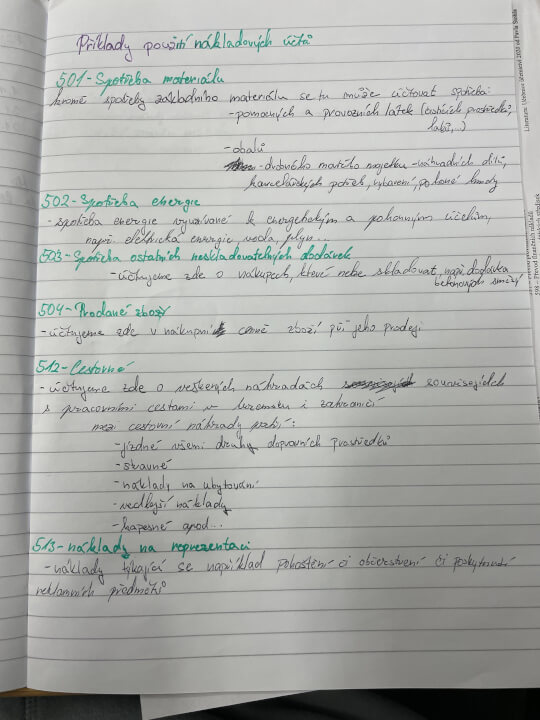 Příklady použití nákladových účtů
501 - Spotřeba materiálu
kromě spotřeby základního materiálu se tu může účtovat spotřeba:
- pomocných a provozních látek (čistících prostředků,
laků,...)
- obalů
- drobného matého majetku - náhradních dílů,
kancelářských potřeb, vybavení, pohonné hmoty
502 - Spotřeba energie
- spotřeba energie využívané k energetickým a pohonným účelům,
např. elektrická energie, voda, plyn...
503 - Spotřeba ostatních neskladovatelných dodávek
- účtujeme zde o nákupech, které nelze skladovat, např. dodávka
betonových směsí
504 - Prodané zboží
- účtujeme zde v nákupní ceně zboží při jeho prodeji
512 - Cestovné
- účtujeme zde o veškerých náhradách souvisejících
s pracovními cestami v tuzemsku i zahraničí
mezi cestovní náhrady patří:
- jízdné všemi druhy dopravních prostředků
- stravné
- náklady na ubytování
- vedlejší náklady
- kapesné apod...
513 - náklady na reprezentaci
- náklady týkající se například pohoštění či občerstvení či poskytnutí
reklamních předmětů